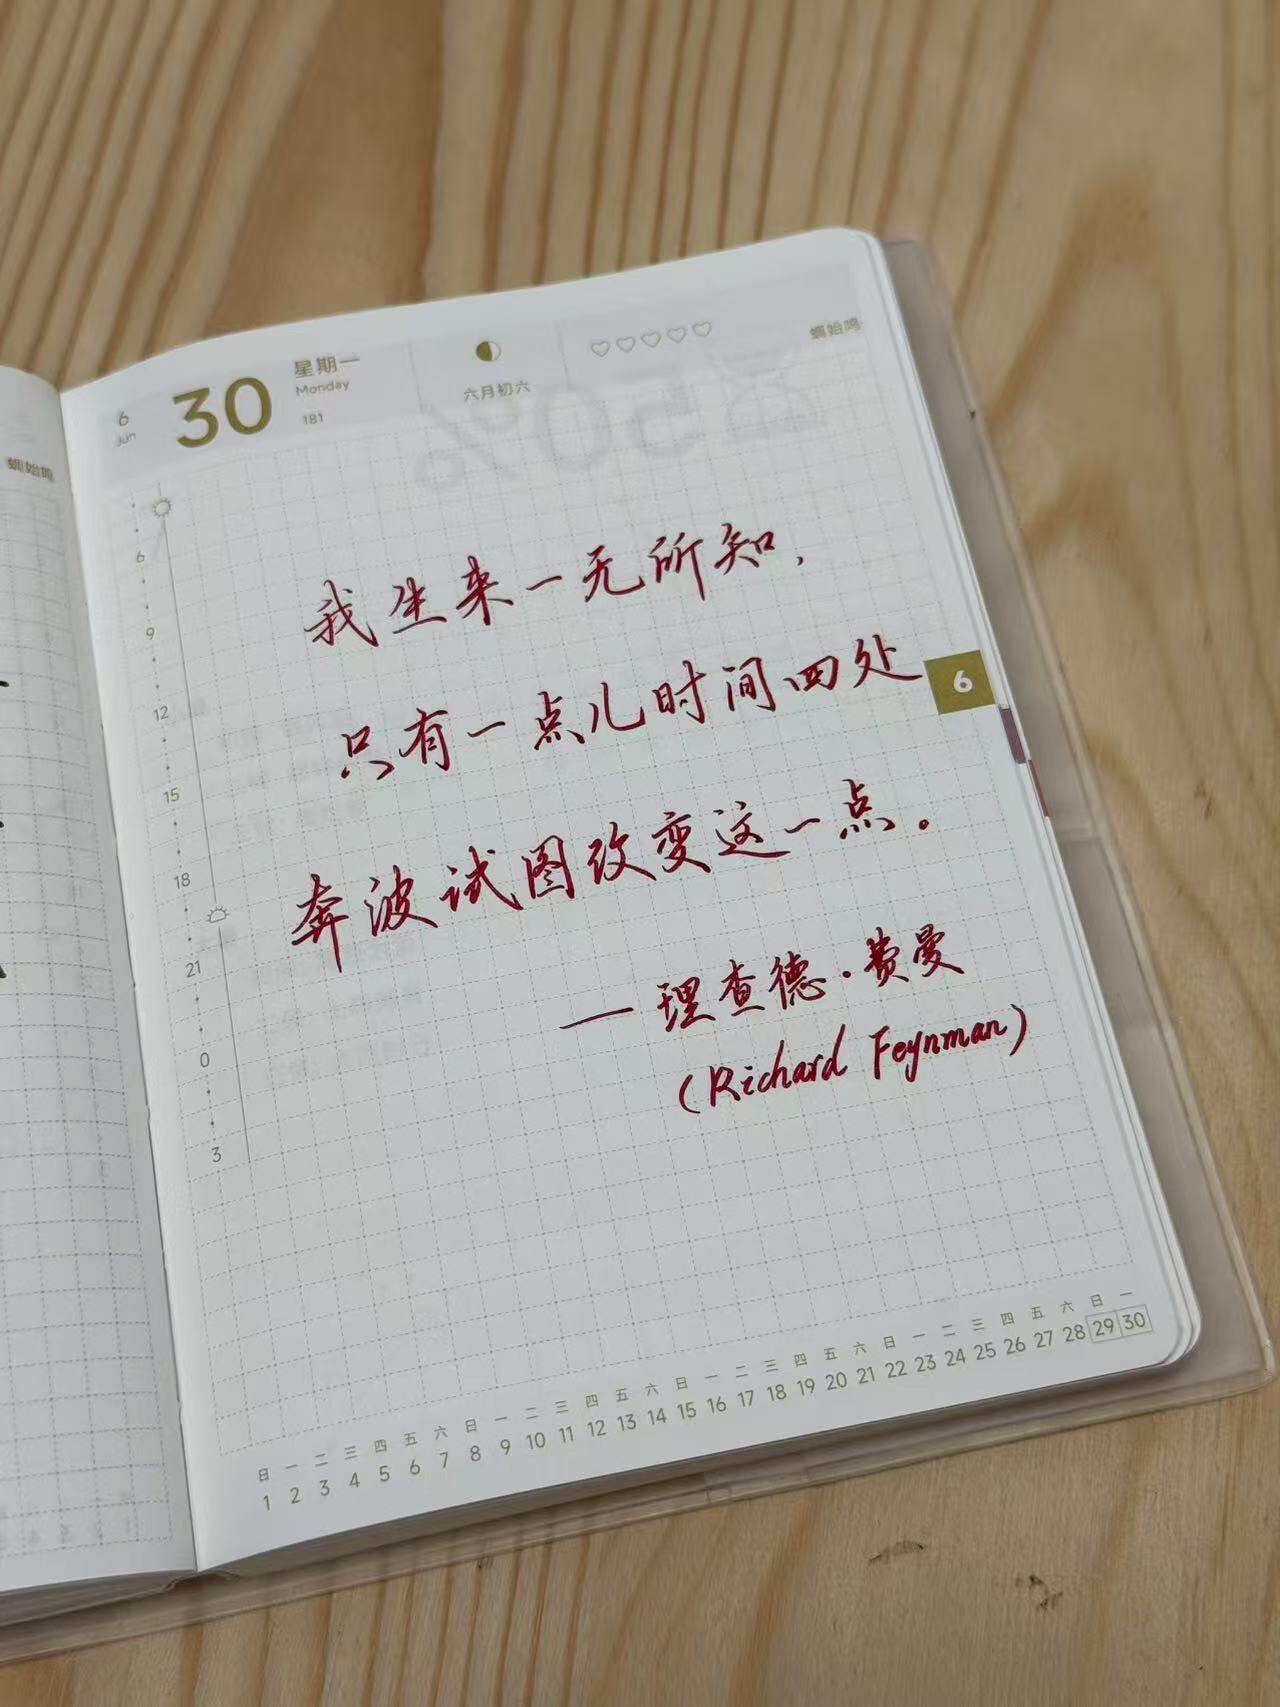 6
Jun
30
星期一
Monday
181
六月初六
蜩始鸣
蜩始鸣
50%
6
9
12
15
18
21
0
3
我生来一无所知，
只有一点儿时间四处
6
奔波试图改变这一点。
—理查德·费曼
(Richard Feynman)
日 一 二 三 四 五 六 日 一 二 三 四 五 六 日 一 二 三 四 五 六 日 一 二 三 四 五 六 日 一
1 2 3 4 5 6 7 8 9 10 11 12 13 14 15 16 17 18 19 20 21 22 23 24 25 26 27 28 29 30